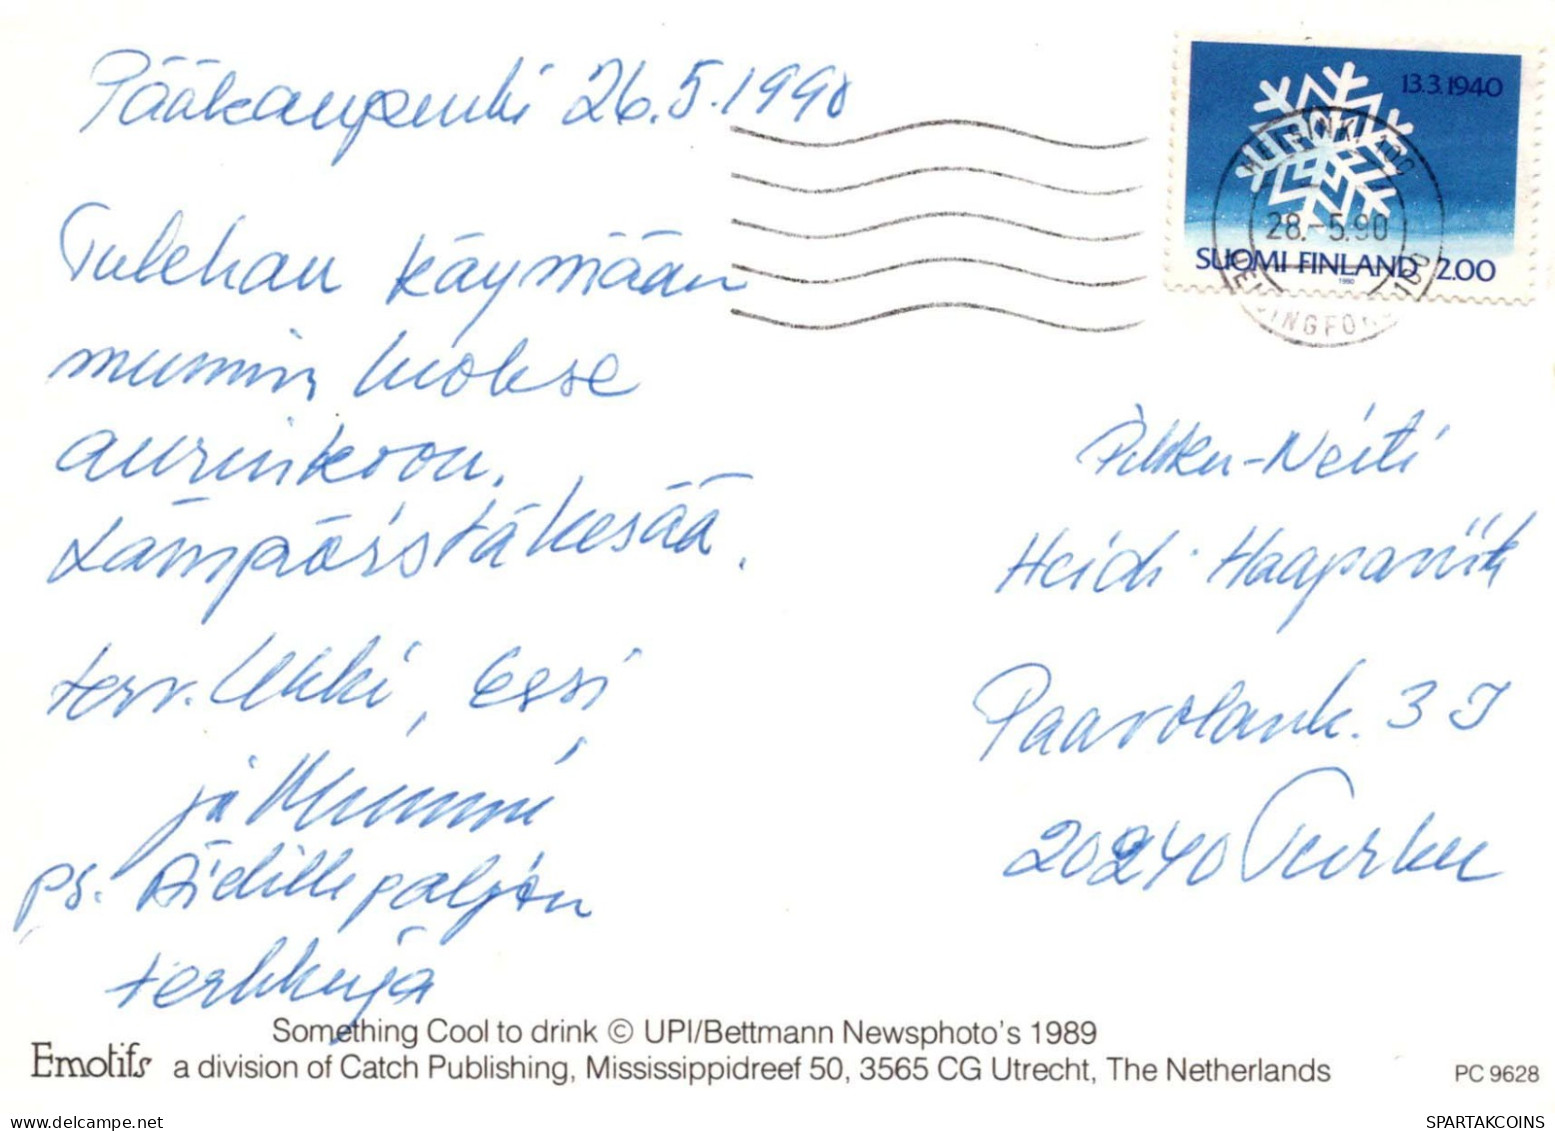 Pääkaupunki 26.5.1990
Tulehan käymään
mumin luokse
aurinkoon.
Lämpöistä kesää.
terv. Ukki, Essi
ja Mummi
ps. Äidille paljon
terkkuja
13.3.1940
HELSINKI 100
28.-5.90
HELSINGFORS 100
SUOMI FINLAND 2.00
1990
Pikku-Neiti
Heidi Haaparinik
Paavolank. 3 J
20240 Turku
Something Cool to drink © UPI/Bettmann Newsphoto's 1989
Emotifs a division of Catch Publishing, Mississippidreef 50, 3565 CG Utrecht, The Netherlands PC 9628
delcampe.net
SPARTAKCOINS